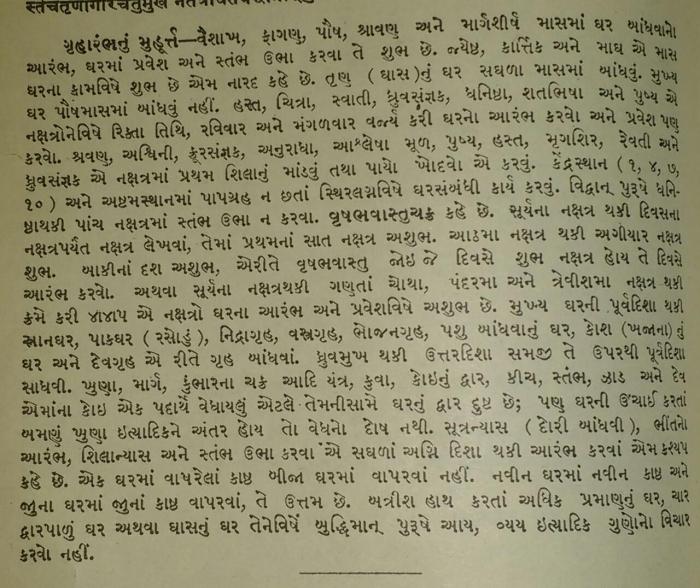 ગૃહારંભનું મુહૂર્ત્ત—વૈશાખ, ફાગણ, પૌષ, શ્રાવણ અને માર્ગશીર્ષ માસમાં ઘર બાંધવાનો
આરંભ, ઘરમાં પ્રવેશ અને સ્તંભ ઉભા કરવા તે શુભ છે. જ્યેષ્ઠ, કાર્ત્તિક અને માઘ એ માસ
ઘરના કામવિષે શુભ છે એમ નારદ કહે છે. તૃણ (ઘાસ)નું ઘર સઘળા માસમાં બાંધવું. મુખ્ય
ઘર પૌષમાસમાં બાંધવું નહીં. હસ્ત, ચિત્રા, સ્વાતી, ધ્રુવસંજ્ઞક, ધનિષ્ઠા, શતભિષા અને પુષ્ય એ
નક્ષત્રોનેવિષે રિક્તા તિથિ, રવિવાર અને મંગળવાર વર્જ્ય કરી ઘરનો આરંભ કરવો અને પ્રવેશ પણ
કરવો. શ્રવણ, અશ્વિની, ક્રૂરસંજ્ઞક, અનુરાધા, આશ્લેષા મૂળ, પુષ્ય, હસ્ત, મૃગશિર, રેવતી અને
ધ્રુવસંજ્ઞક એ નક્ષત્રમાં પ્રથમ શિલાનું માંડવું તથા પાયો ખોદવો એ કરવું. કેંદ્રસ્થાન (૧, ૪, ૭,
૧૦) અને અષ્ટમસ્થાનમાં પાપગ્રહ ન છતાં સ્થિરલગ્નવિષે ઘરસંબંધી કાર્ય કરવું. વિદ્વાન્ પુરૂષે ધનિ-
ષ્ઠાથકી પાંચ નક્ષત્રમાં સ્તંભ ઉભા ન કરવા. વૃષભવાસ્તુચક્ર કહે છે. સૂર્યના નક્ષત્ર થકી દિવસના
નક્ષત્રપર્યંત નક્ષત્ર લેખવાં, તેમાં પ્રથમનાં સાત નક્ષત્ર અશુભ. આઠમા નક્ષત્ર થકી અગીયાર નક્ષત્ર
શુભ. બાકીનાં દશ અશુભ, એરીતે વૃષભવાસ્તુ જોઇ જે દિવસે શુભ નક્ષત્ર હોય તે દિવસે
આરંભ કરવો. અથવા સૂર્યના નક્ષત્રથકી ગણતાં ચોથા, પંદરમા અને ત્રેવીશમા નક્ષત્ર થકી
ક્રમે કરી ૪ા૪ા૫ એ નક્ષત્રો ઘરના આરંભ અને પ્રવેશવિષે અશુભ છે. મુખ્ય ઘરની પૂર્વદિશા થકી
સ્નાનઘર, પાકઘર (રસોડું), નિદ્રાગૃહ, વસ્ત્રગૃહ, ભોજનગૃહ, પશુ બાંધવાનું ઘર, કોશ (ખજાના) નું
ઘર અને દેવગૃહ એ રીતે ગૃહ બાંધવાં. ધ્રુવમુખ થકી ઉત્તરદિશા સમજી તે ઉપરથી પૂર્વદિશા
સાધવી. ખુણા, માર્ગ, કુંભારના ચક્ર આદિ યંત્ર, કુવા, કોઇનું દ્વાર, કીચ, સ્તંભ, ઝાડ અને દેવ
એમાંના કોઇ એક પદાર્થે વેધાયલું એટલે તેમનીસામે ઘરનું દ્વાર દુષ્ટ છે; પણ ઘરની ઉંચાઈ કરતાં
બમણું ખુણા ઇત્યાદિકને અંતર હોય તો વેધનો દોષ નથી. સૂત્રન્યાસ (દોરી બાંધવી), ભીંતનો
આરંભ, શિલાન્યાસ અને સ્તંભ ઉભા કરવા એ સઘળાં અગ્નિ દિશા થકી આરંભ કરવાં એમ કશ્યપ
કહે છે. એક ઘરમાં વાપરેલાં કાષ્ઠ બીજા ઘરમાં વાપરવાં નહીં. નવીન ઘરમાં નવીન કાષ્ઠ અને
જુના ઘરમાં જુનાં કાષ્ઠ વાપરવાં, તે ઉત્તમ છે. બત્રીશ હાથ કરતાં અધિક પ્રમાણનું ઘર, ચાર
દ્વારપાળું ઘર અથવા ઘાસનું ઘર તેનેવિષે બુદ્ધિમાન્ પુરૂષે આય, વ્યય ઇત્યાદિક ગુણોનો વિચાર
કરવો નહીં.